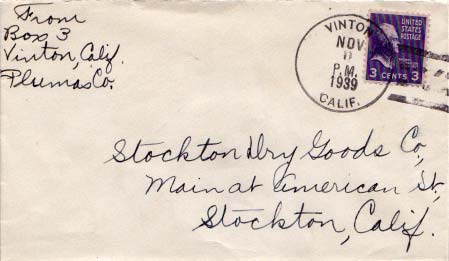 From
Box 3
Vinton, Calif.
Plumas Co.
VINTON
NOV
P.M.
1939
CALIF.
UNITED STATES
POSTAGE
3 CENTS 3
Stockton Dry Goods Co,
Main at American St,
Stockton, Calif.